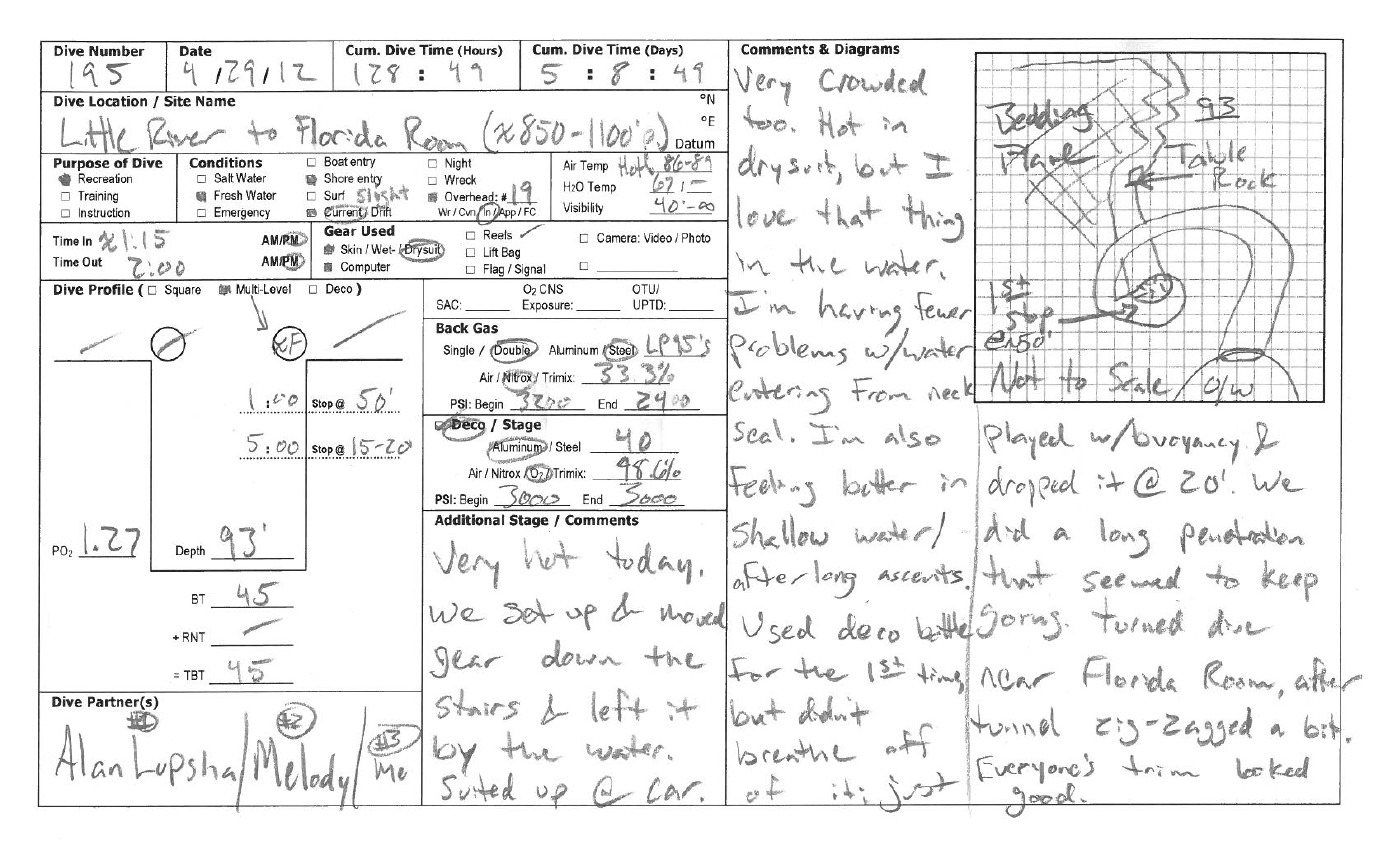 Dive Number
195
Date
4/29/12
Cum. Dive Time (Hours)
128 : 49
Cum. Dive Time (Days)
5 : 8 : 49
Dive Location / Site Name
°N
°E
Little River to Florida Room (≈850-1100'p.) Datum
Purpose of Dive
Recreation
Training
Instruction
Conditions
Salt Water
Fresh Water
Emergency
Boat entry
Shore entry
Surf Slight
Current / Drift
Night
Wreck
Overhead: # 19
Wr / Cvn / In / App / FC
Air Temp Hot! 86-89
H2O Temp 67
Visibility 40'-∞
Time In ≈1:15 AM/PM
Time Out 2:00 AM/PM
Gear Used
Skin / Wet- / Drysuit
Computer
Reels
Lift Bag
Flag / Signal
Camera: Video / Photo
Dive Profile ( Square Multi-Level Deco )
≈F
1:00 Stop @ 50'
5:00 Stop @ 15-20
PO2 1.27
Depth 93'
BT 45
+ RNT
= TBT 45
Dive Partner(s)
#1 #2 #3
Alan Lupsha / Melody / Me
O2 CNS OTU/
SAC: Exposure: UPTD:
Back Gas
Single / Double Aluminum / Steel LP95's
Air / Nitrox / Trimix: 33.3%
PSI: Begin 3200 End 2400
Deco / Stage
Aluminum / Steel 40
Air / Nitrox / O2 / Trimix: 98.6%
PSI: Begin 3000 End 3000
Additional Stage / Comments
Very hot today.
We set up & moved
gear down the
stairs & left it
by the water.
Suited up @ car.
Comments & Diagrams
Very Crowded
too. Hot in
drysuit, but I
love that thing
in the water.
I'm having fewer
problems w/water
entering from neck
seal. I'm also
feeling better in
shallow water/
after long ascents.
Used deco bottle
for the 1st time,
but didn't
breathe off
of it; just
Bedding
Plane
93
Table
Rock
1st
Stop
@≈50'
Not to Scale O/W
played w/buoyancy &
dropped it @ 20'. We
did a long penetration
that seemed to keep
going. Turned dive
near Florida Room, after
tunnel zig-zagged a bit.
Everyone's trim looked
good.